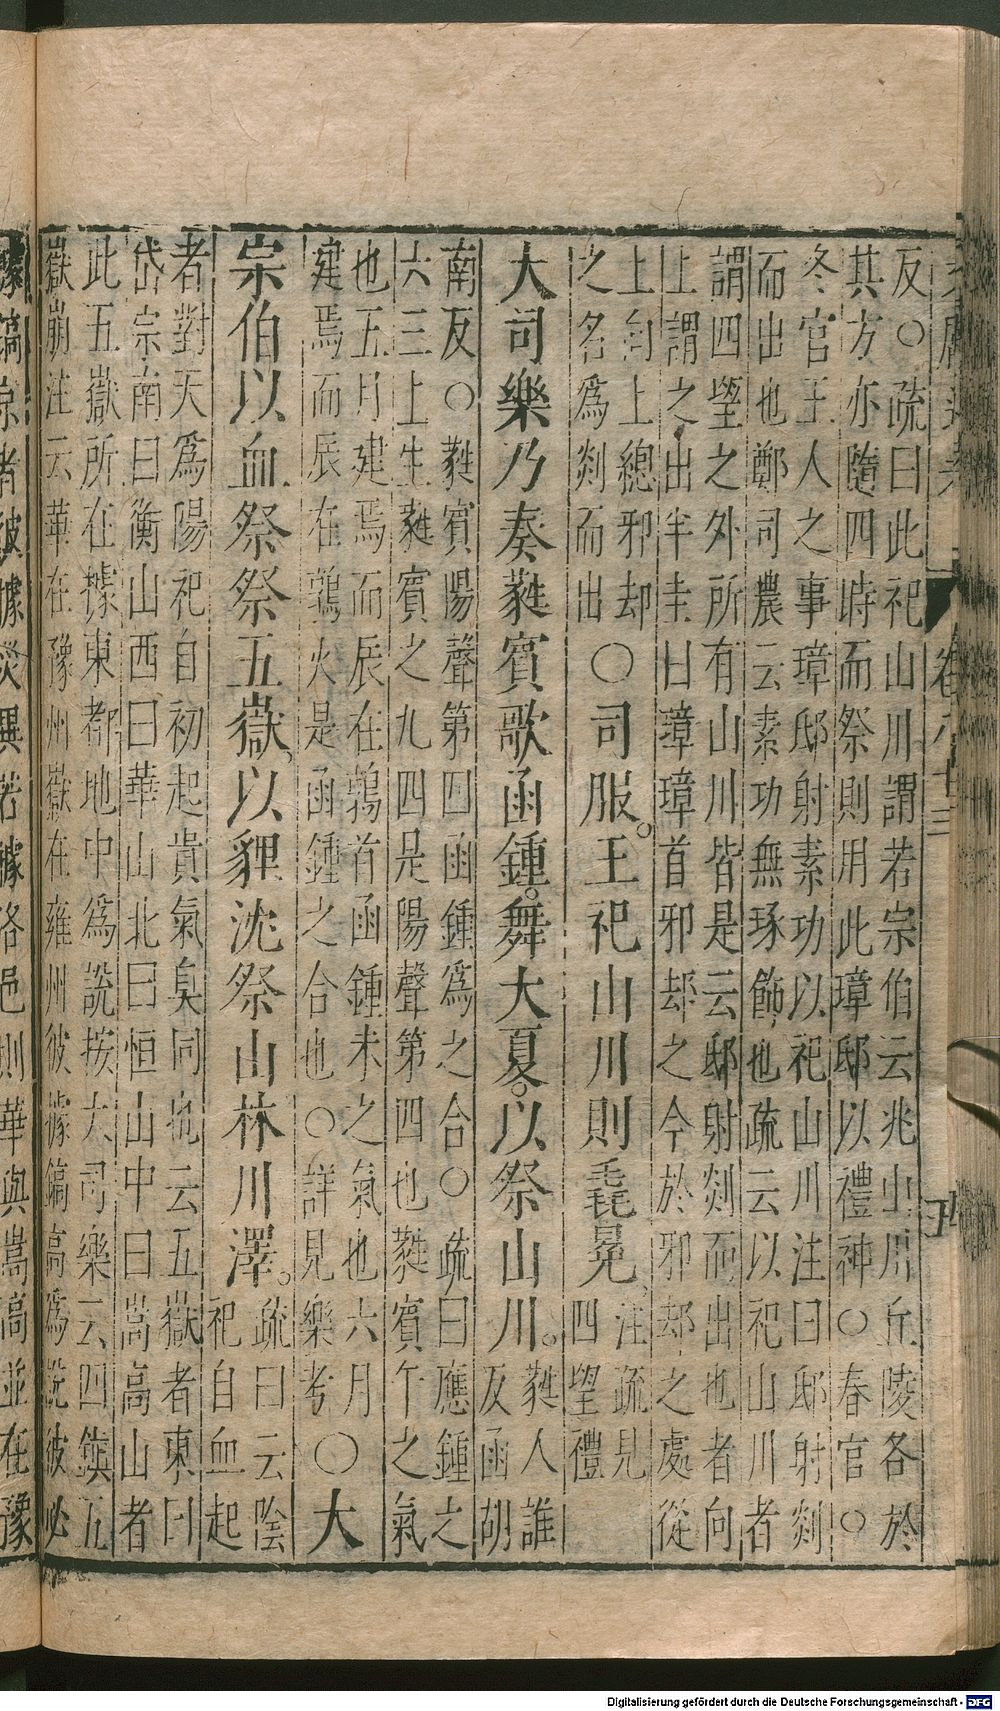 卷八十三
反〇疏曰此祀山川謂若宗伯云兆山川丘陵各於
其方亦隨四時而祭則用此璋邸以禮神〇春官〇
冬官玉人之事璋邸射素功以祀山川注曰邸射剡
而出也鄭司農云素功無琢飾也疏云以祀山川者
謂四望之外所有山川皆是云邸射剡而出也者向
上謂之出半圭曰璋璋首邪却之今於邪却之處從
上向上總邪却
之名爲剡而出
〇司服。王祀山川則毳冕
注疏見
四望禮
大司樂乃奏蕤賓歌函鍾。舞大夏。以祭山川。
蕤人誰
反函胡
南反〇蕤賓陽聲第四函鍾爲之合〇疏曰應鍾之
六三上生蕤賓之九四是陽聲第四也蕤賓午之氣
也五月建焉而辰在鶉首函鍾未之氣也六月
建焉而辰在鶉火是函鍾之合也〇詳見樂考
〇大
宗伯以血祭祭五嶽、以貍沈祭山林川澤。
疏曰云陰
祀自血起
者對天爲陽祀自初起貴氣臭同也云五嶽者東曰
岱宗南曰衡山西曰華山北曰恒山中曰嵩高山者
此五嶽所在據東都地中爲說按大司樂云四鎮五
嶽崩注云華在豫州嶽在雍州彼據鎬高爲說彼必
據鎬京者彼據災異若據洛邑則華與嵩高並在豫
Digitalisierung gefördert durch die Deutsche Forschungsgemeinschaft - DFG